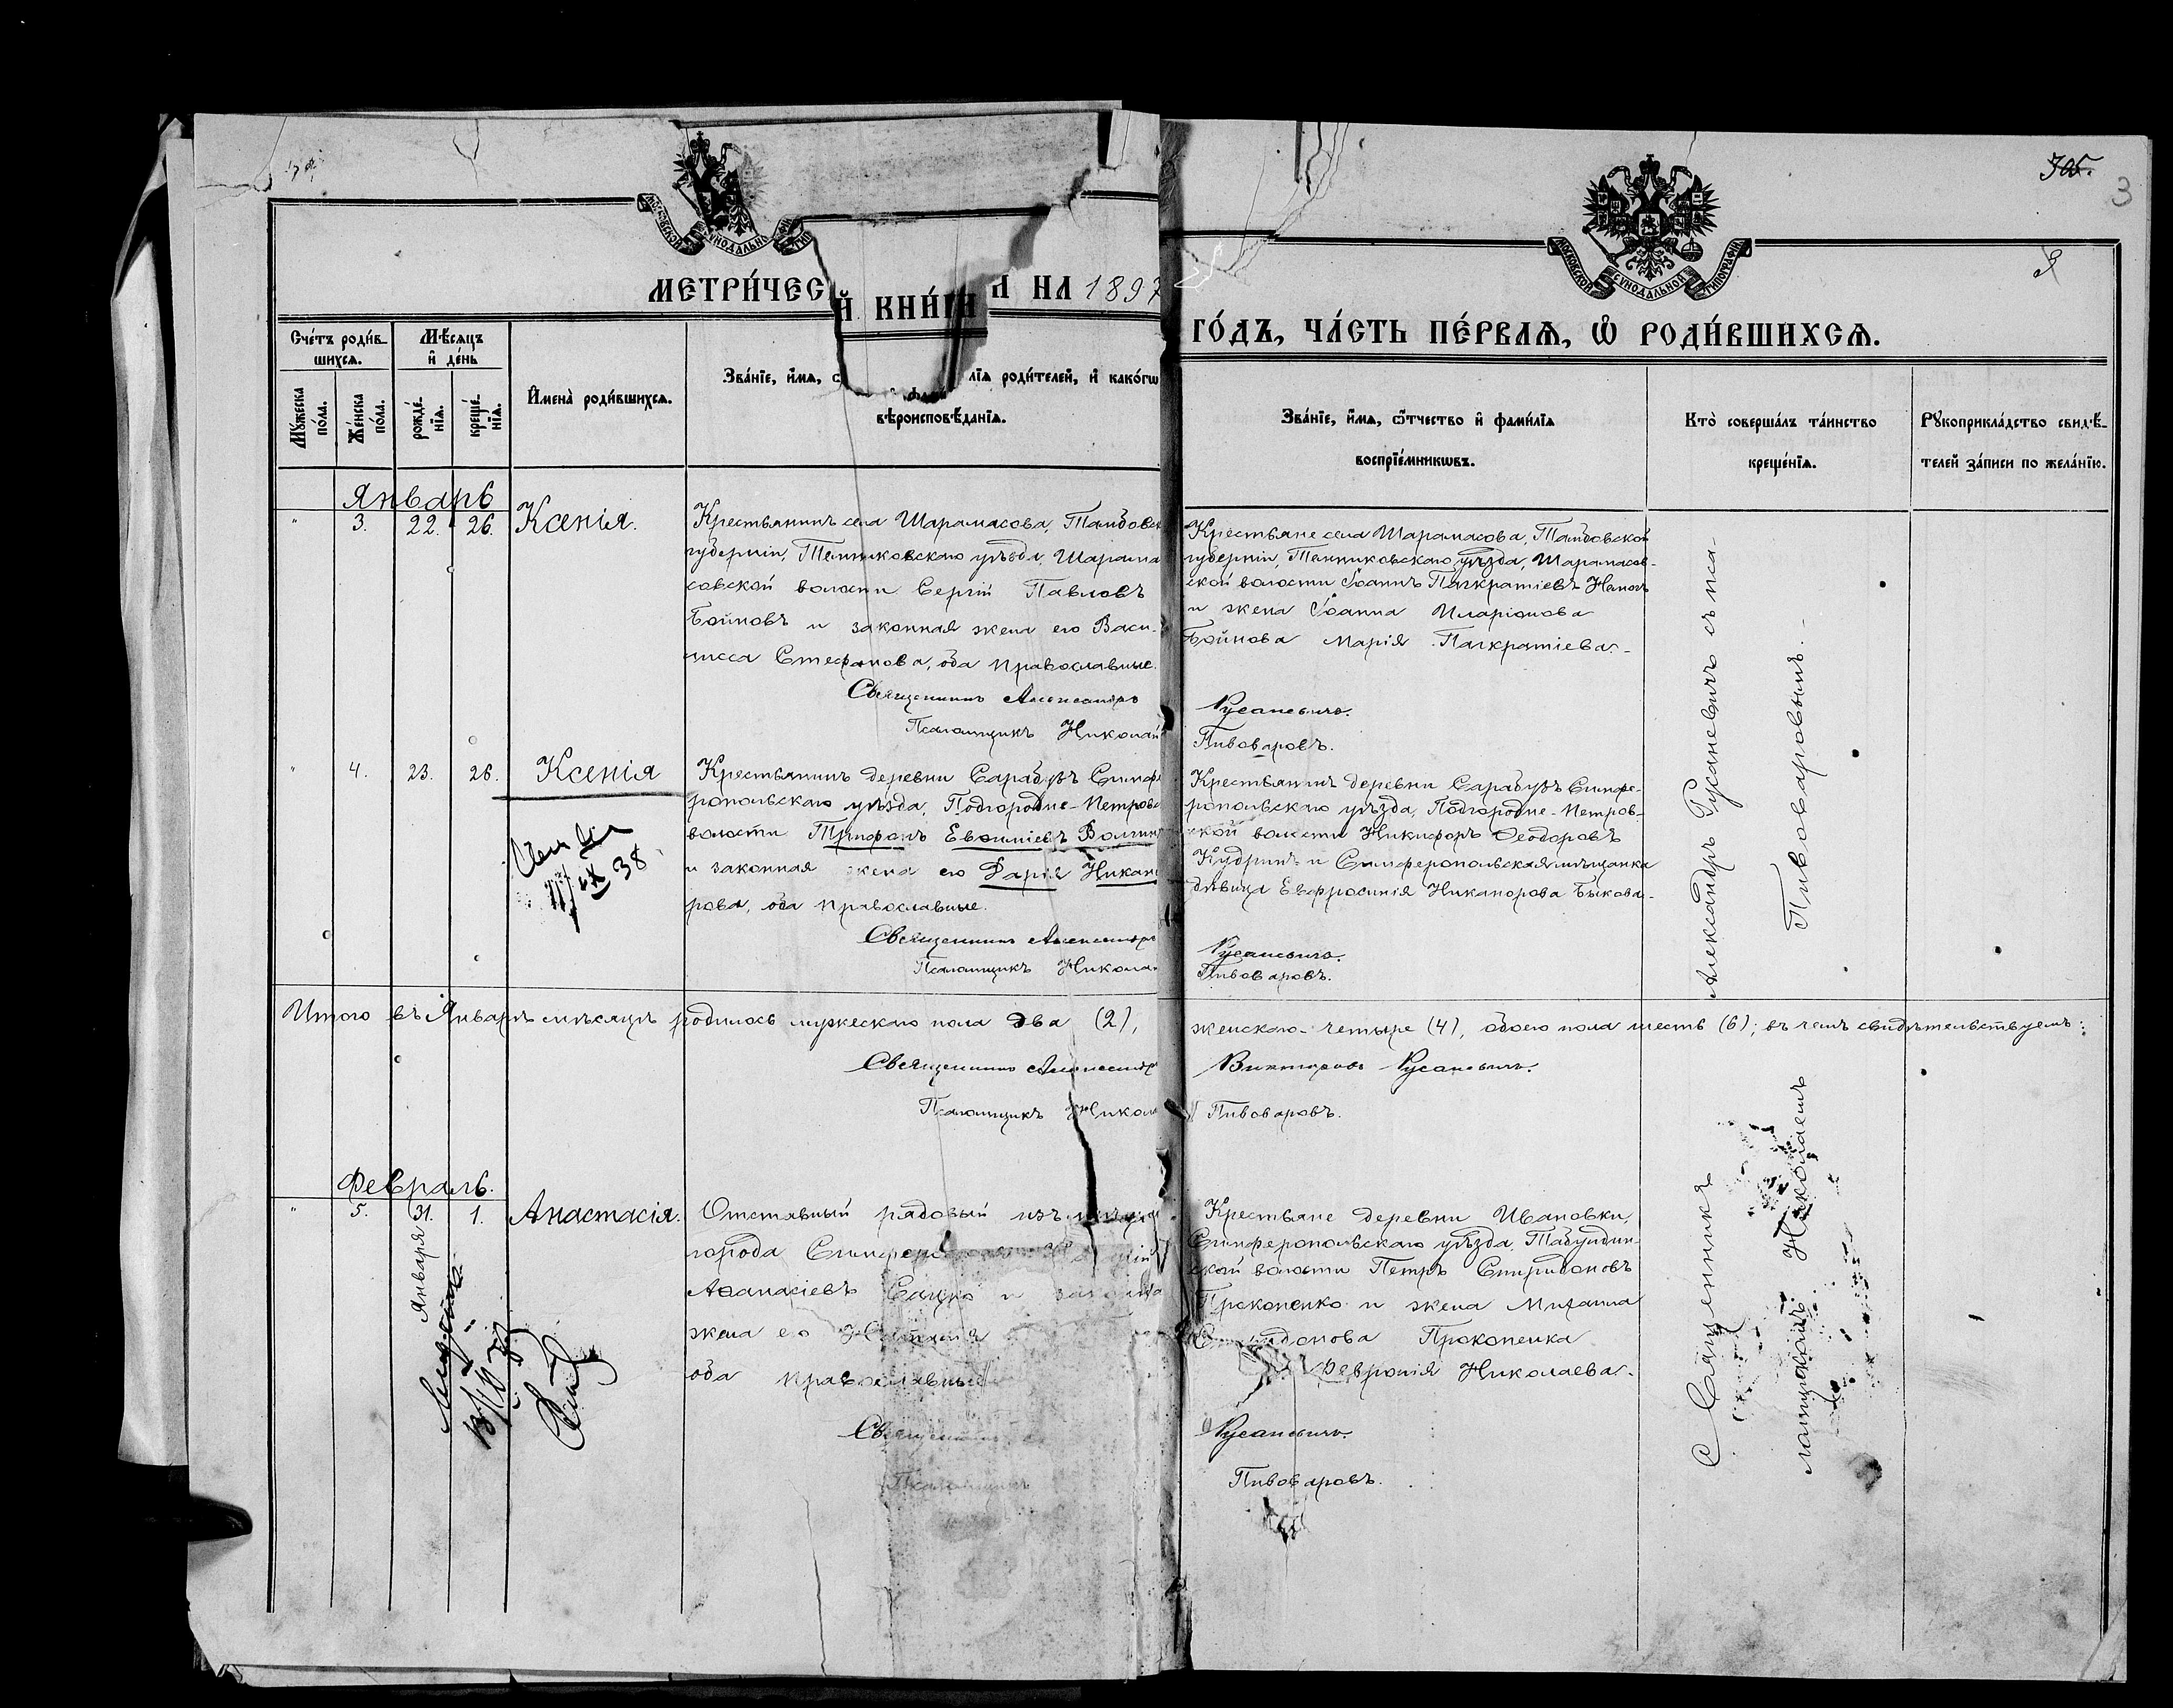 705.
3
МОСКОВСКОЙ СѴНОДАЛЬНОЙ ТИП
МОСКОВСКОЙ СѴНОДАЛЬНОЙ ТИПОГРАФІИ
МЕТРИ́ЧЕС Й КНИ́ГИ НА 1897
ГО́ДЪ, ЧА́СТЬ ПЕ́РВАѦ, Ѡ҆ РОДИ́ВШИХСѦ.
Сче́тъ роди́в-
шихсѧ.
Мꙋ́жеска по́ла.
Же́нска по́ла.
Мѣ́сѧцъ
и҆ де́нь
рожде́-
нїѧ.
креще́-
нїѧ.
И҆мена̀ роди́вшихсѧ.
Зва́нїе, и҆́мѧ, лїѧ роди́телей, и҆ како́гѡ
вѣроисповѣ́данїѧ.
Зва́нїе, и҆́мѧ, ѻ҆́тчество и҆ фами́лїѧ
воспрїе́мникѡвъ.
Кто̀ соверша́лъ та́инство
креще́нїѧ.
Рꙋкоприкла́дство свидѣ́-
телей за́писи по жела́нїю.
Январь
" 3. 22. 26. Ксенія.
Крестьянинъ села Шарамасова, Тамбовск
губерніи, Темниковскаго уѣзда, Шарама
совской волости Сергій Павловъ
Бойновъ и законная жена его Васи-
лисса Стефанова, оба православные.
Священникъ Александръ
Псаломщикъ Николай
Крестьяне села Шарамасова, Тамбовской
губерніи, Темниковскаго уѣзда, Шарамасов-
ской волости Іоаннъ Панкратіевъ
и жена Іоанна Иларіонова
Бойнова Марія Панкратіева.-
Русаневичъ.
Пивоваровъ.
" 4. 23. 26. Ксенія
38
Крестьянинъ деревни Сарабузъ Симфе
ропольскаго уѣзда, Подгородне-Петровс
волости Трифонъ Евѳиміевъ Волгинъ
и законная жена его Дарія Никано
рова, оба православные.
Священникъ Александръ
Псаломщикъ Никола
Крестьянинъ деревни Сарабузъ Симфе-
ропольскаго уѣзда, Подгородне-Петров-
ской волости Никифоръ Ѳеодоровъ
Кудринъ и Симферопольская мѣщанка
дѣвица Евфросинія Никанорова Быкова.-
Русаневичъ.
Пивоваровъ.
Итого въ Январѣ мѣсяцѣ родилось мужескаго пола два (2),
женскаго - четыре (4), обоего пола шесть (6); въ чемъ свидѣтельствуемъ:
Священникъ Александръ
Викторовъ Русаневичъ.
Псаломщикъ Никола
Пивоваровъ.
Февраль.
" 5. 31. Января 1. Анастасія.
Отставный рядовый изъ
города
Аѳанасіевъ Сацко и
жена его
оба православные
Священникъ
Псаломщикъ
Крестьяне деревни Ивановки,
Симферопольскаго уѣзда, Табулдин-
ской волости Петръ Спиридоновъ
Прокопенко и жена Михаила
Спиридонова Прокопенка
Февронія Николаева.
Русаневичъ.
Пивоваровъ.
Священникъ Александръ Русаневичъ съ пса-
ломщикомъ Николаемъ Пивоваровымъ.-